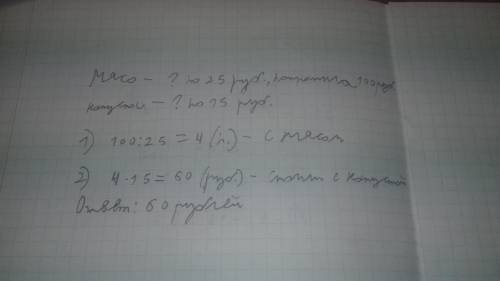 Мясо - ? по 25 руб., потратила 100 руб.
капустой - ? по 15 руб.
1) 100:25 = 4 (п.) - с мясом
2) 4·15 = 60 (руб.) - стоит с капустой
Ответ: 60 рублей